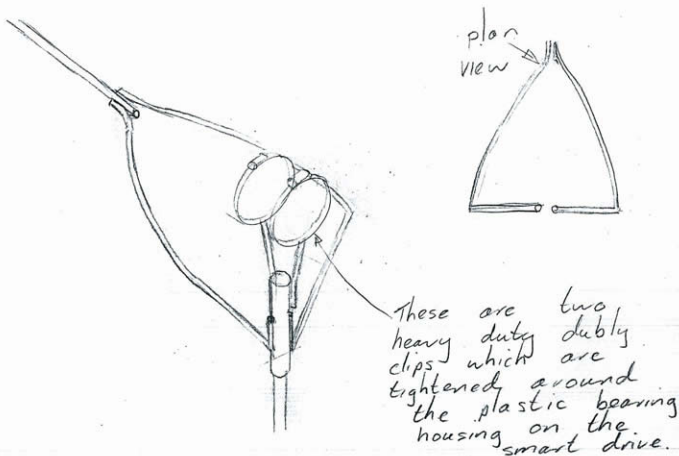 plan
view
These are two
heavy duty dubly
clips which are
tightened around
the plastic bearing
housing on the
smart drive.